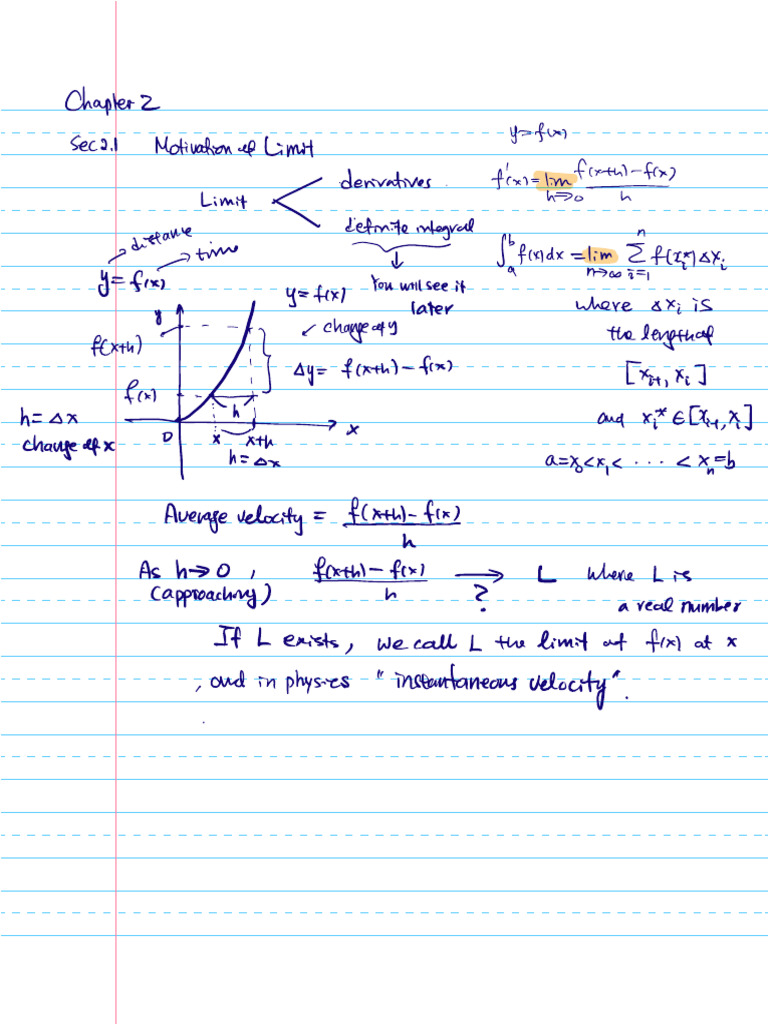 Chapter 2
Sec 2.1 Motivation of Limit
y=f(x)
Limit
derivatives
f'(x) = lim h→0 f(x+h)-f(x) / h
definite integral
∫_a^b f(x)dx = lim n→∞ Σ_{i=1}^n f(x_i^*) Δx_i
You will see it
later
where Δx_i is
the length of
[x_{i-1}, x_i]
and x_i^* ∈ [x_{i-1}, x_i]
a=x_0<x_1< ··· < x_n=b
distance
time
y = f(x)
y = f(x)
change of y
Δy = f(x+h) - f(x)
y
f(x+h)
f(x)
h
h = Δx
change of x
0
x
x+h
x
h = Δx
Average velocity = f(x+h) - f(x) / h
As h→0, f(x+h) - f(x) / h → L where L is
(approaching) ? a real number
If L exists, we call L the limit of f(x) at x
, and in physics "instantaneous velocity".